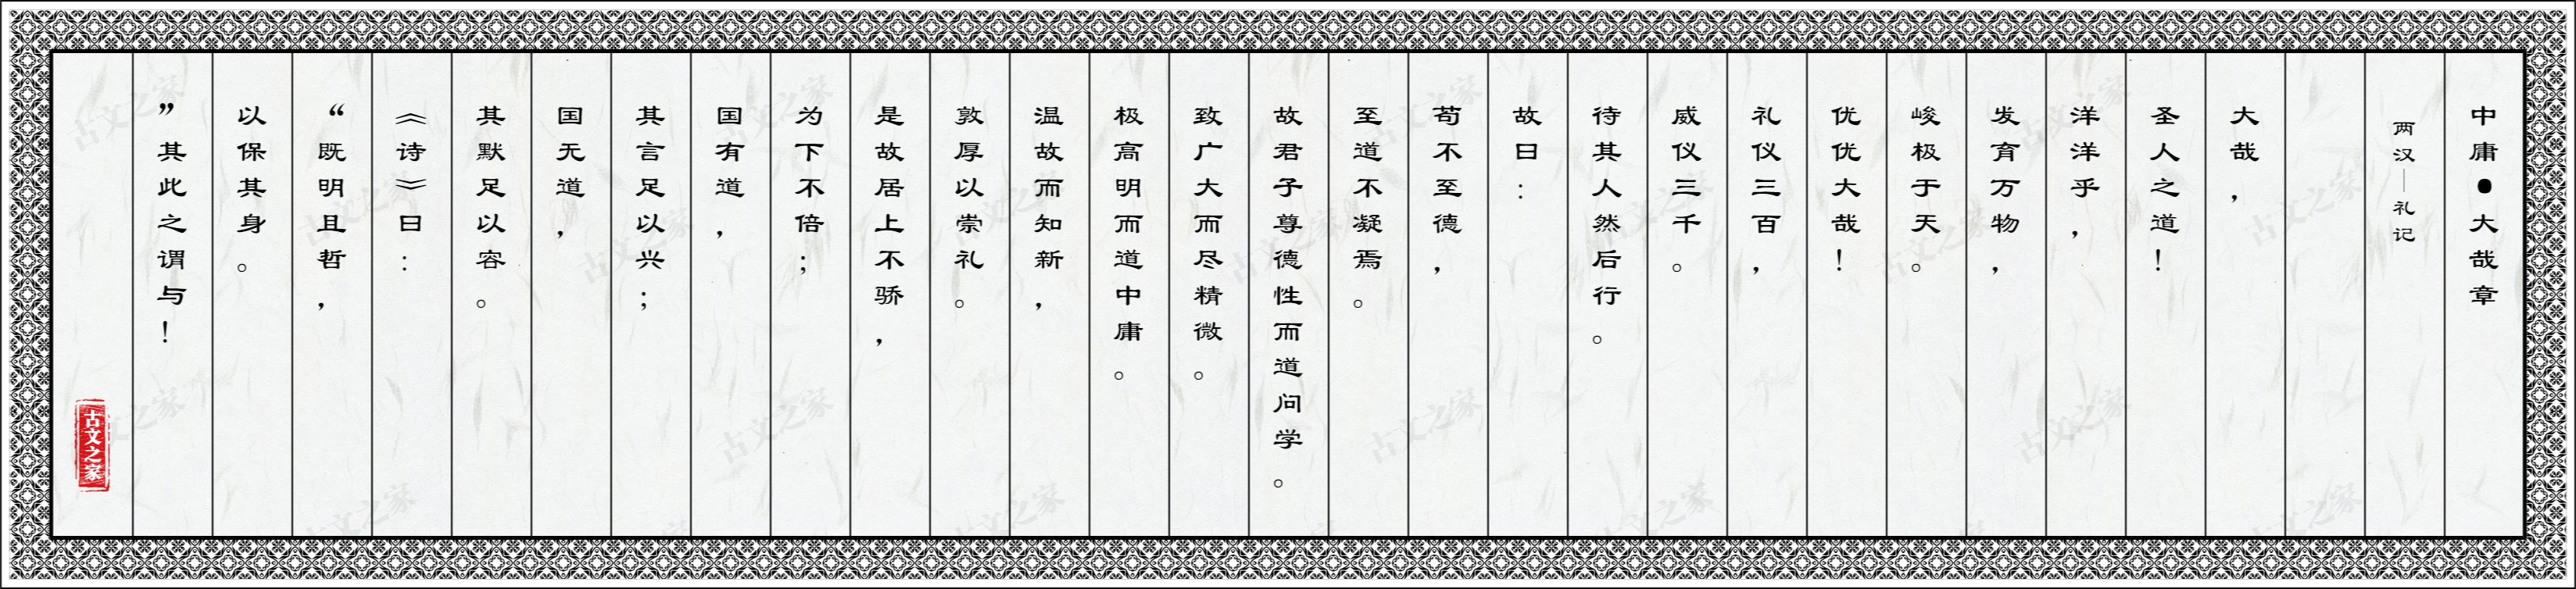 中庸●大哉章
两汉—礼记
大哉，
圣人之道！
洋洋乎，
发育万物，
峻极于天。
优优大哉！
礼仪三百，
威仪三千。
待其人然后行。
故曰：
苟不至德，
至道不凝焉。
故君子尊德性而道问学。
致广大而尽精微。
极高明而道中庸。
温故而知新，
敦厚以崇礼。
是故居上不骄，
为下不倍；
国有道，
其言足以兴；
国无道，
其默足以容。
《诗》曰：
“既明且哲，
以保其身。
”其此之谓与！
古文之家